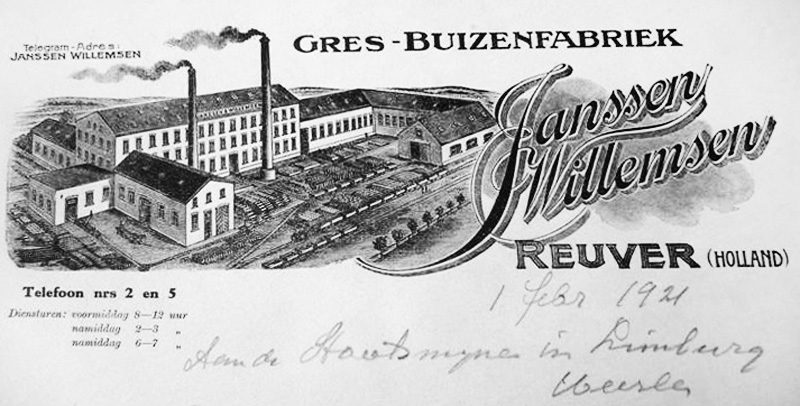 Telegram-Adres:
JANSSEN WILLEMSEN
GRES-BUIZENFABRIEK
JANSSEN WILLEMSEN
Janssen
Willemsen
REUVER (HOLLAND)
Telefoon nrs 2 en 5
Diensturen: voormiddag 8—12 uur
namiddag 2—3 „
namiddag 6—7 „
1 febr 1921
Aan de Staatsmijnen in Limburg
Heerlen